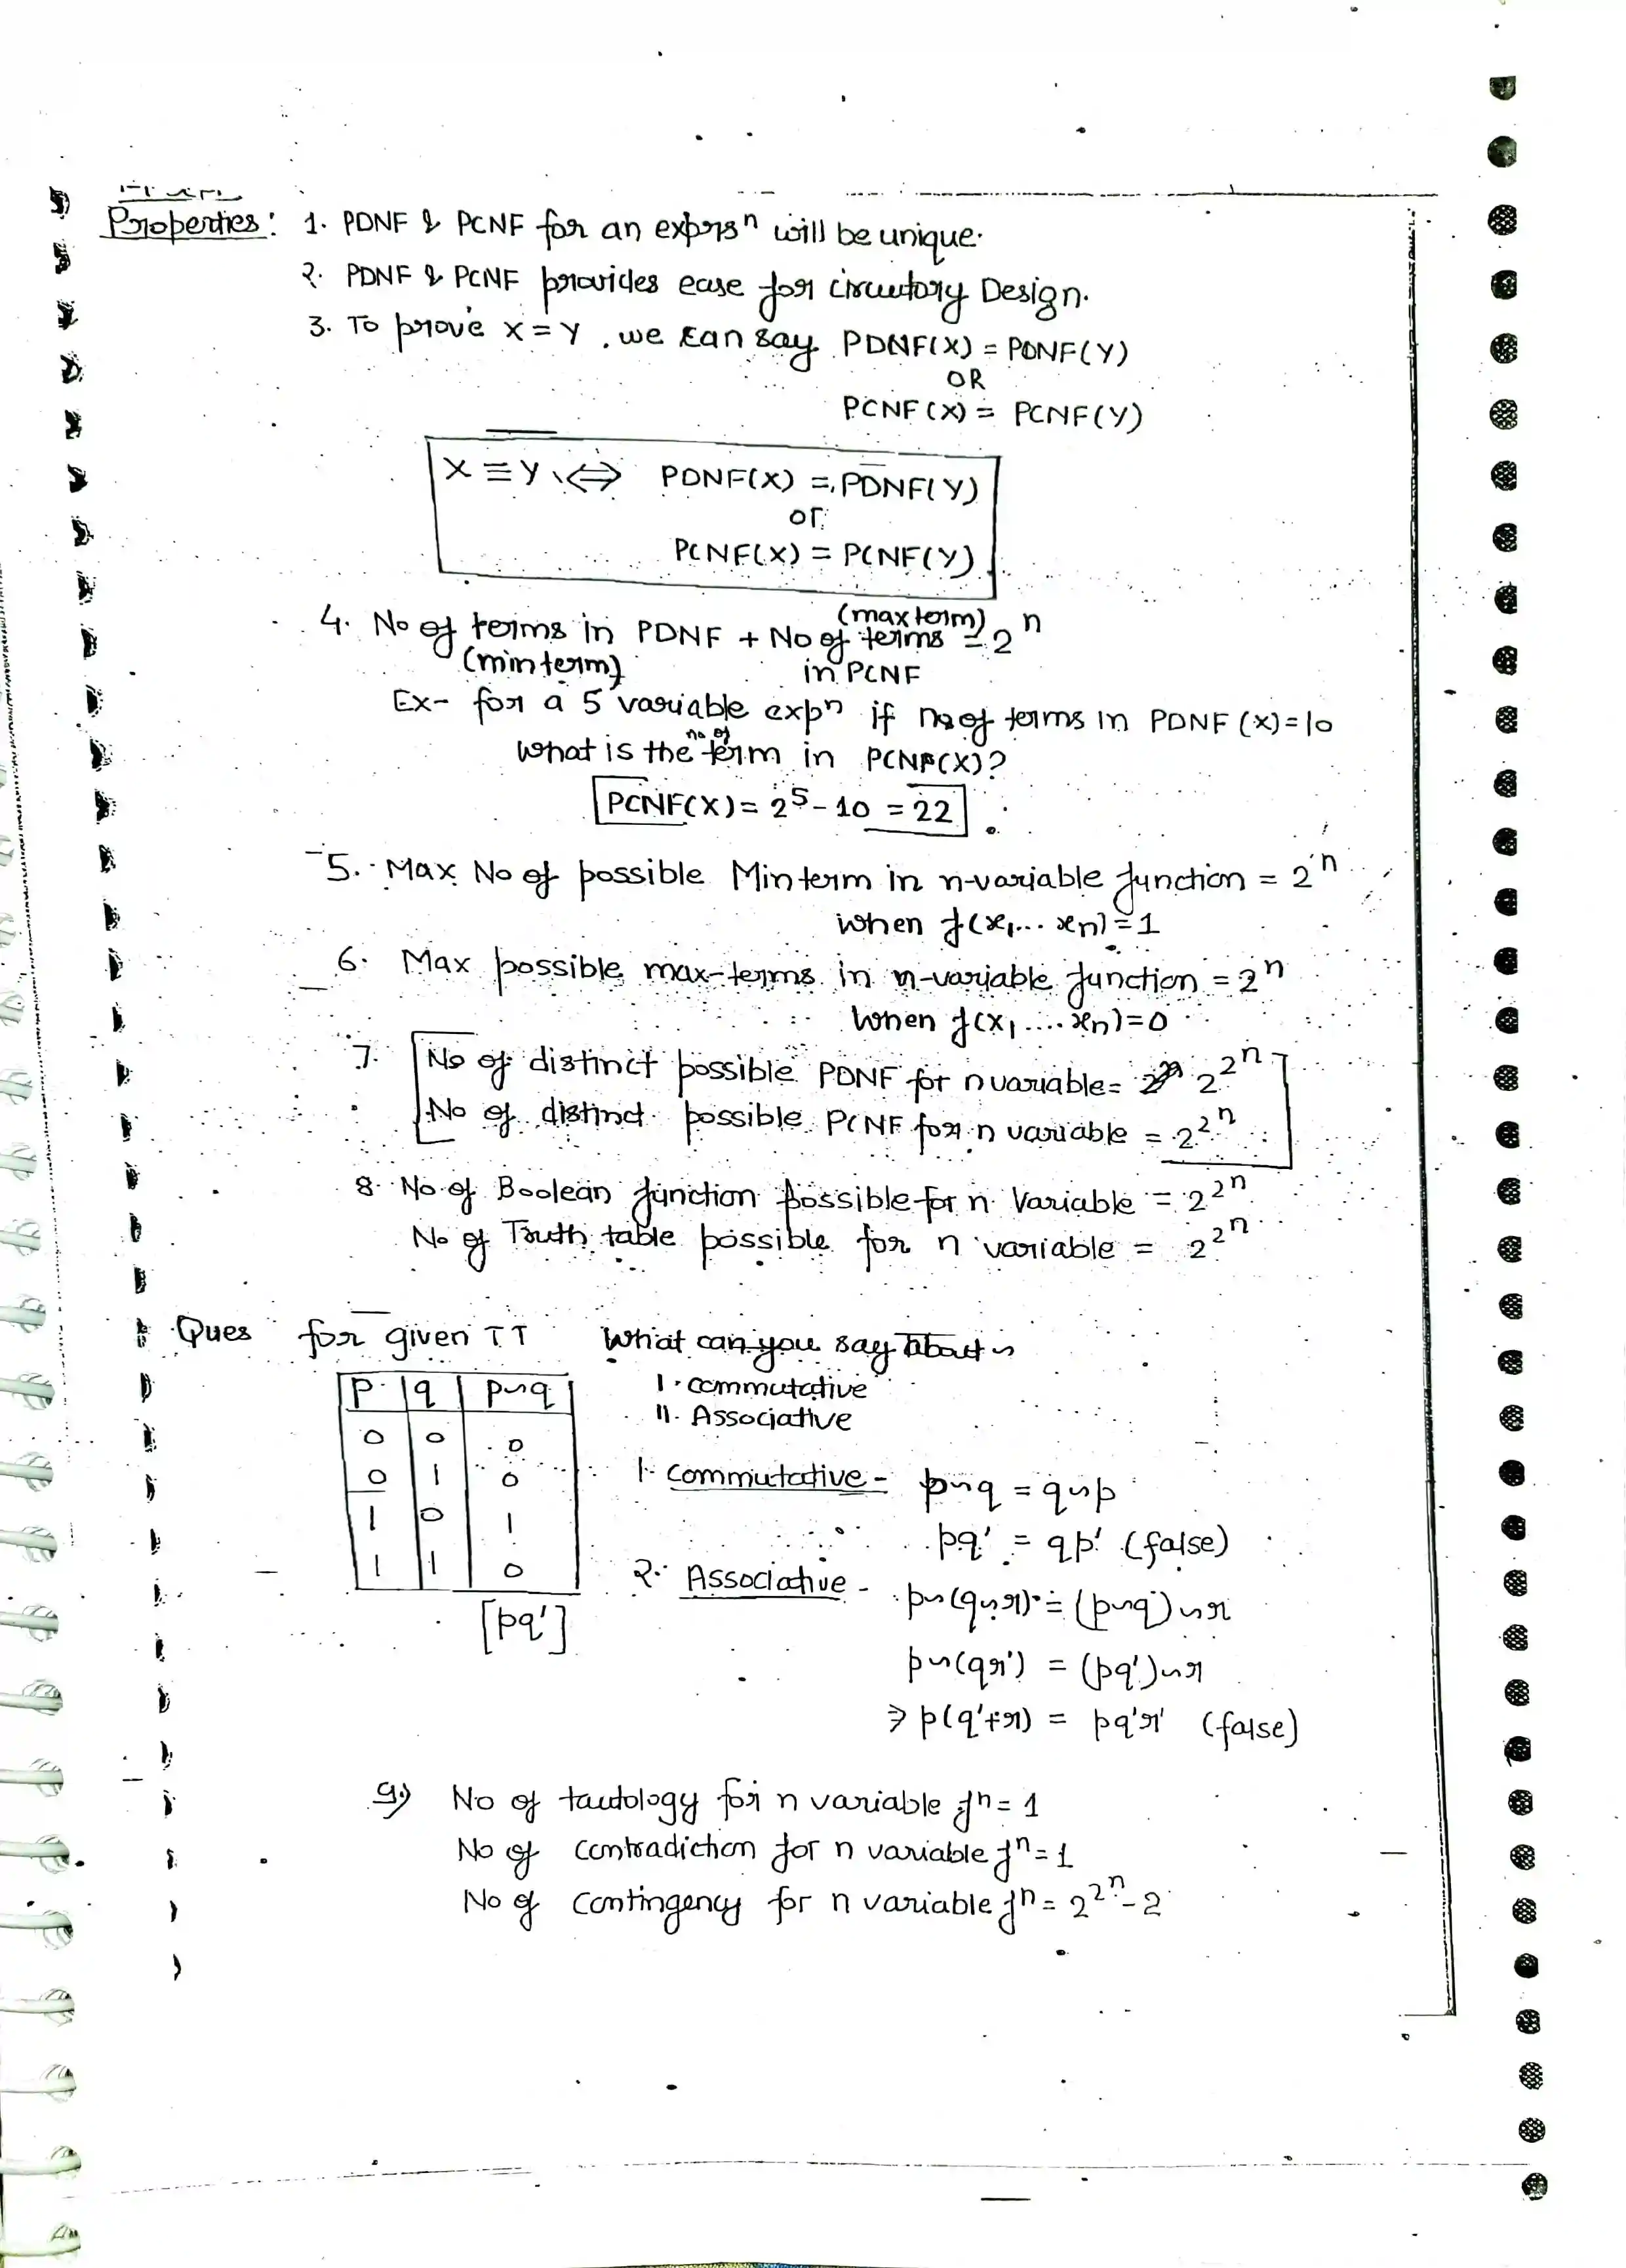 Properties: 1. PDNF & PCNF for an exprsⁿ will be unique.
2. PDNF & PCNF provides ease for circutory Design.
3. To prove X = Y, we can say PDNF(X) = PDNF(Y)
OR
PCNF(X) = PCNF(Y)
X ≡ Y ⇔ PDNF(X) = PDNF(Y)
or
PCNF(X) = PCNF(Y)
4. No of terms in PDNF + No of terms = 2ⁿ
(minterm) (maxterm) in PCNF
Ex- for a 5 variable expⁿ if no of terms in PDNF (X)=10
What is the no of term in PCNF(X)?
PCNF(X) = 2⁵ - 10 = 22
5. Max No of possible Minterm in n-variable function = 2ⁿ
when f(x₁... xₙ) = 1
6. Max possible max-terms in n-variable function = 2ⁿ
when f(x₁ .... xₙ) = 0
7. No of distinct possible PDNF for n variable = 2^2ⁿ
No of distinct possible PCNF for n variable = 2^2ⁿ
8. No of Boolean function possible for n Variable = 2^2ⁿ
No of Truth table possible for n variable = 2^2ⁿ
Ques for given TT What can you say about ~
p q p~q
I. commutative
II. Associative
0 0 0
0 1 0
1 0 1
1 1 0
[pq']
1. Commutative - p~q = q~p
pq' = qp' (false)
2. Associative - p~(q~r) = (p~q)~r
p~(qr') = (pq')~r
⇒ p(q'+r) = pq'r' (false)
9.) No of tautology for n variable fⁿ = 1
No of contradiction for n variable fⁿ = 1
No of contingency for n variable fⁿ = 2^2ⁿ - 2